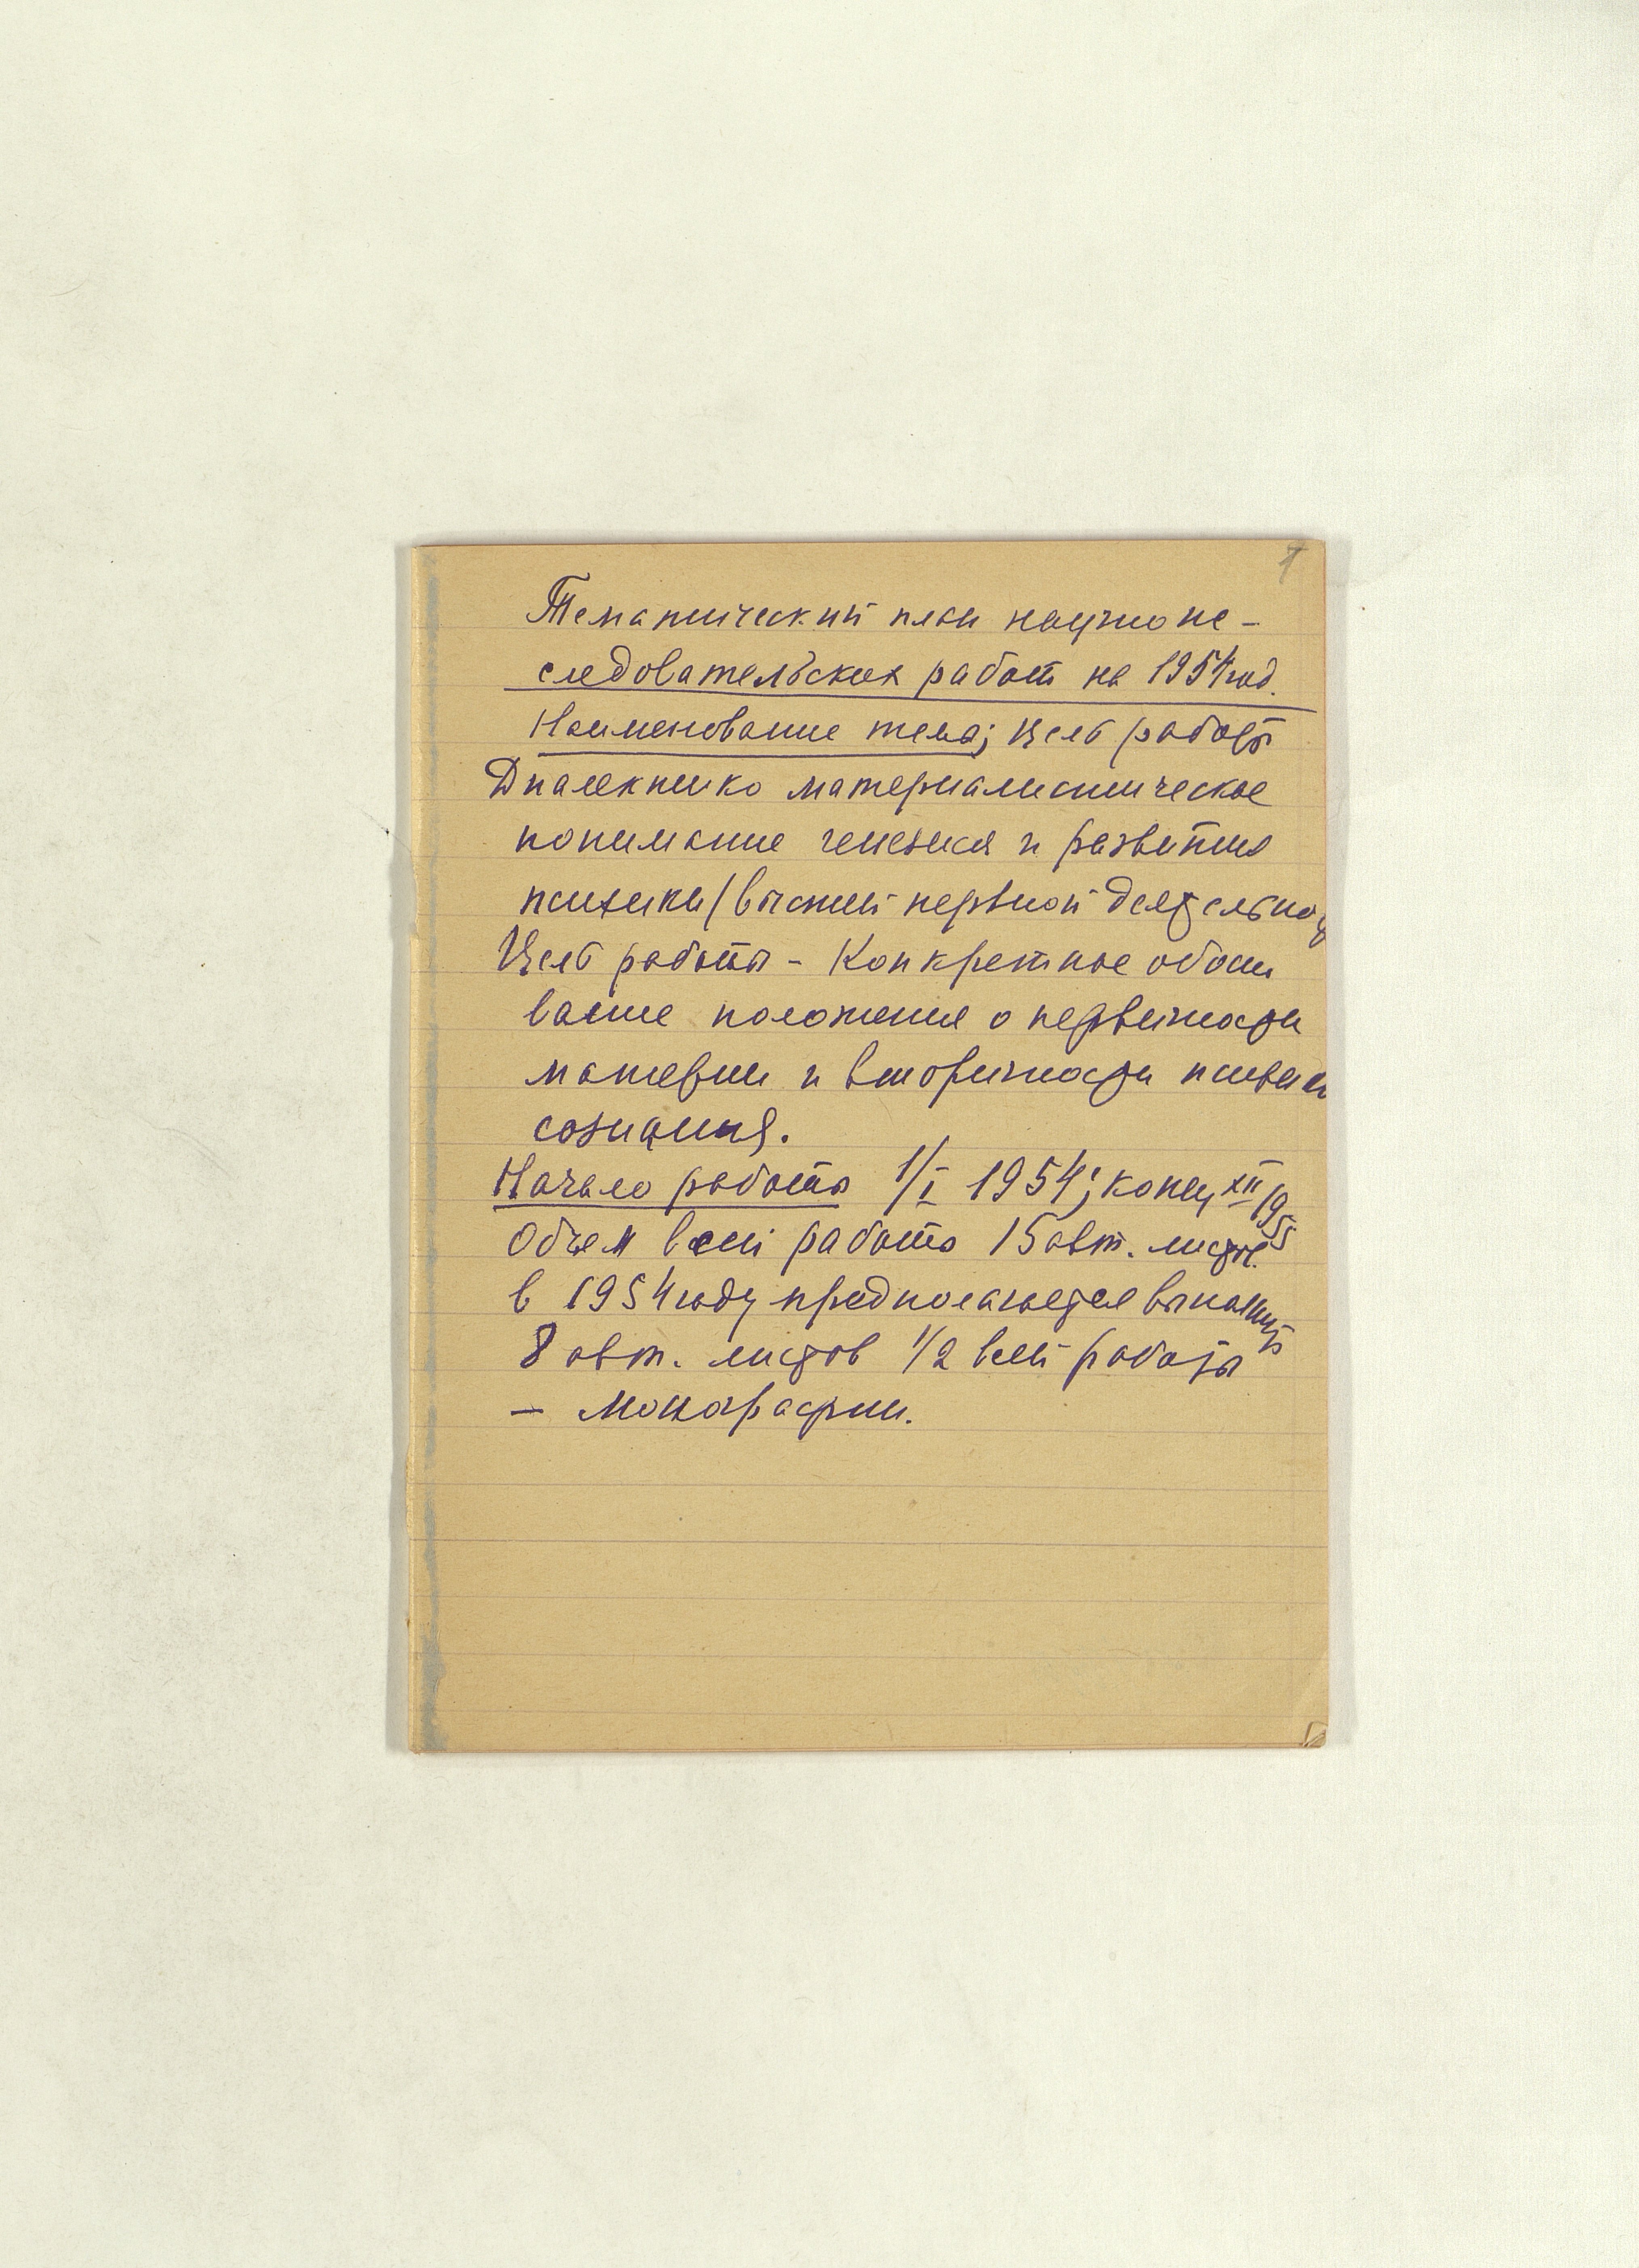 1
Тематический план научно ис-
следовательских работ на 1954 год.
Наименование темы; цель работы
Диалектико материалистическое
понимание генезиса и развития
психики / высшей нервной деятельнос
Цель работы - Конкретное обосно
вание положения о первичности
материи и вторичности психики
сознания.
Начало работы 1/I 1954; конец XII 1955
Объем всей работы 15 авт. листов.
в 1954 году предполагается выполнить
8 авт. листов 1/2 всей работы
— монографии.